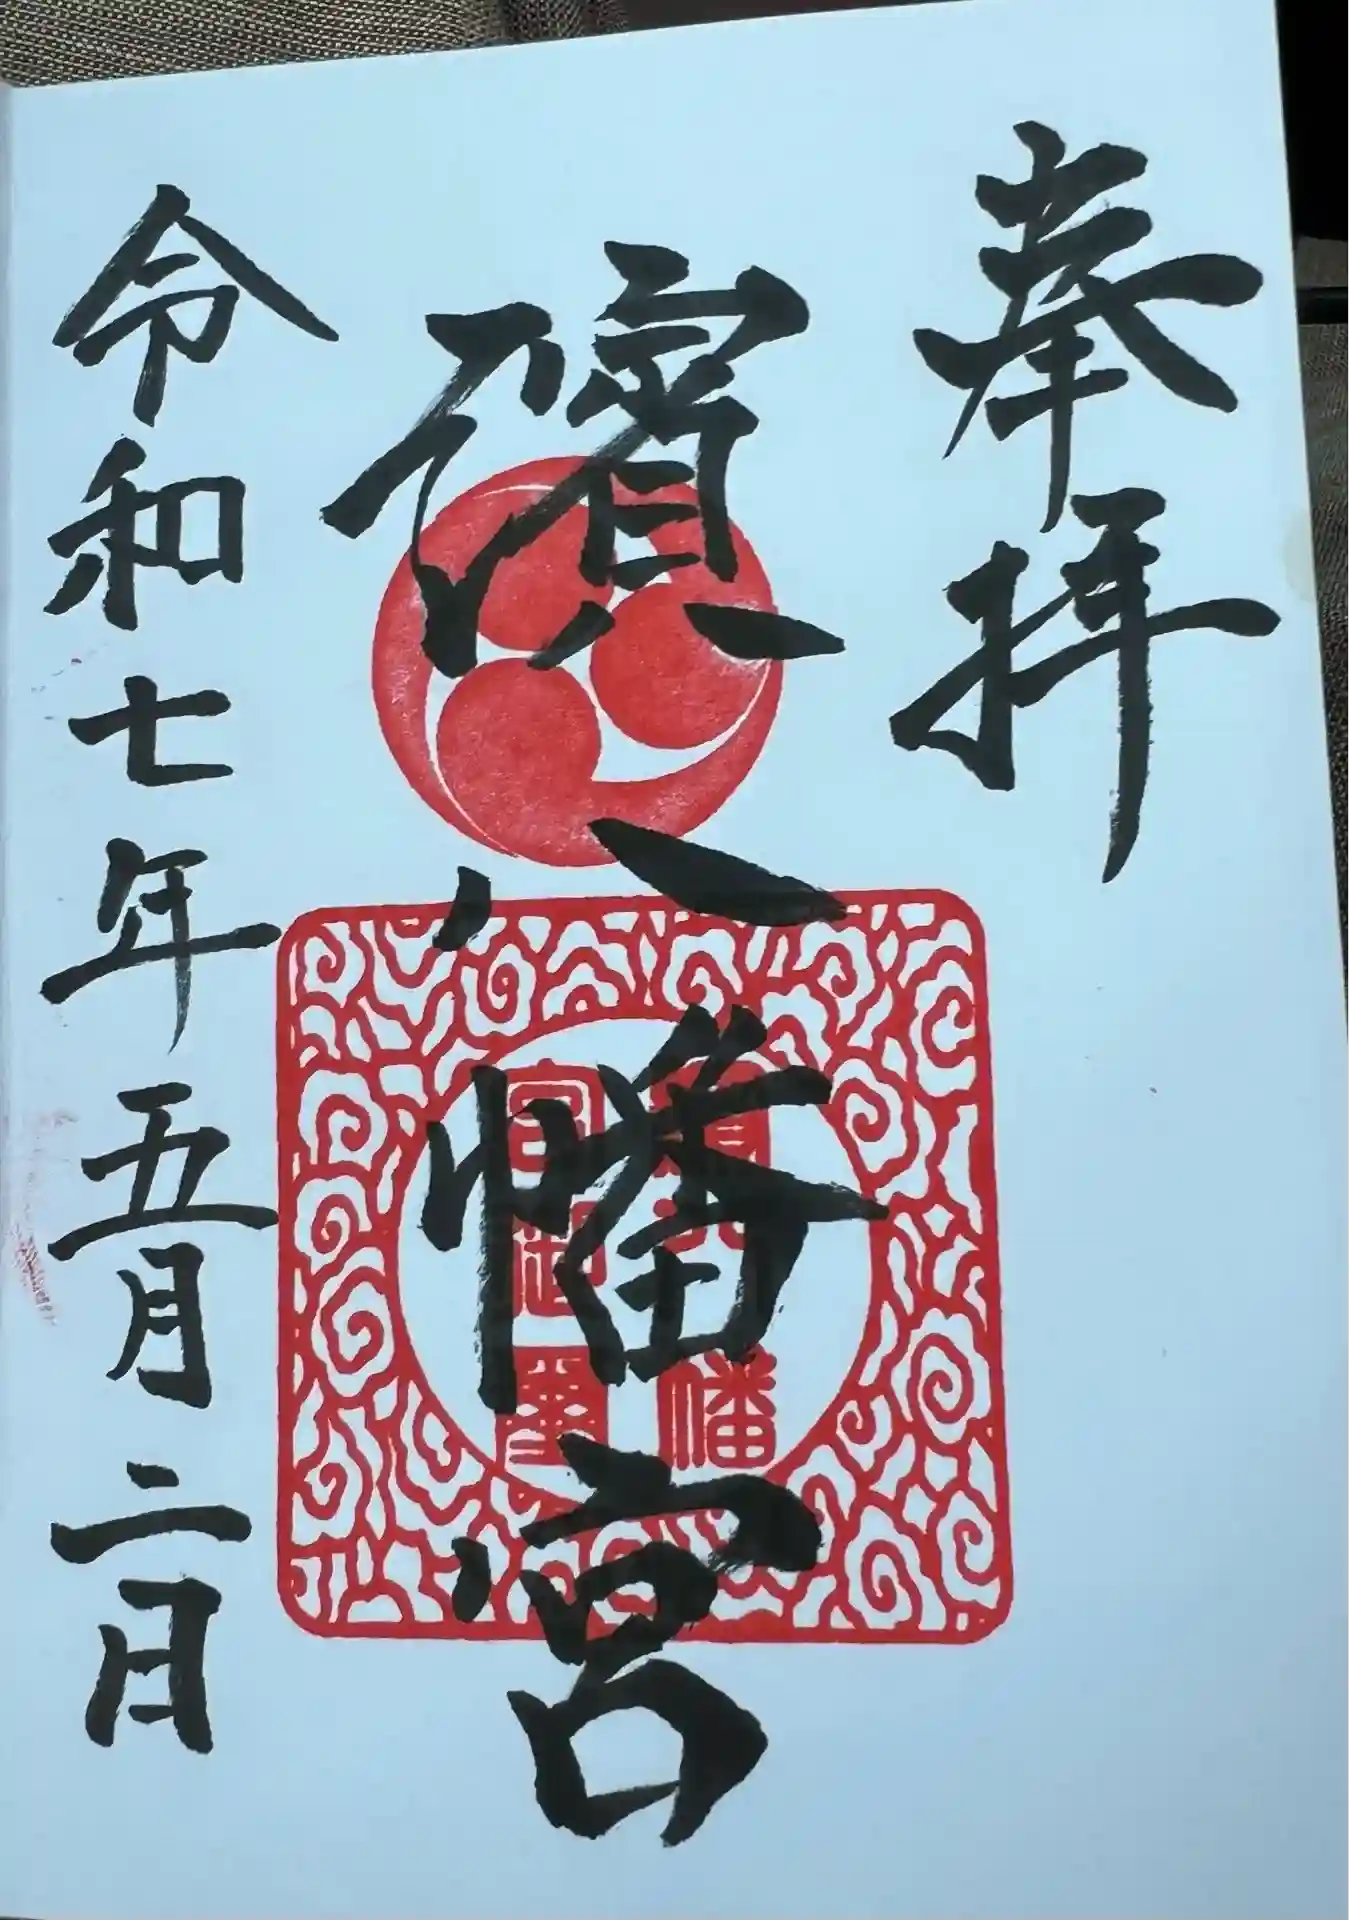 奉拝
八幡宮
令和七年五月二日
八幡
宮御璽